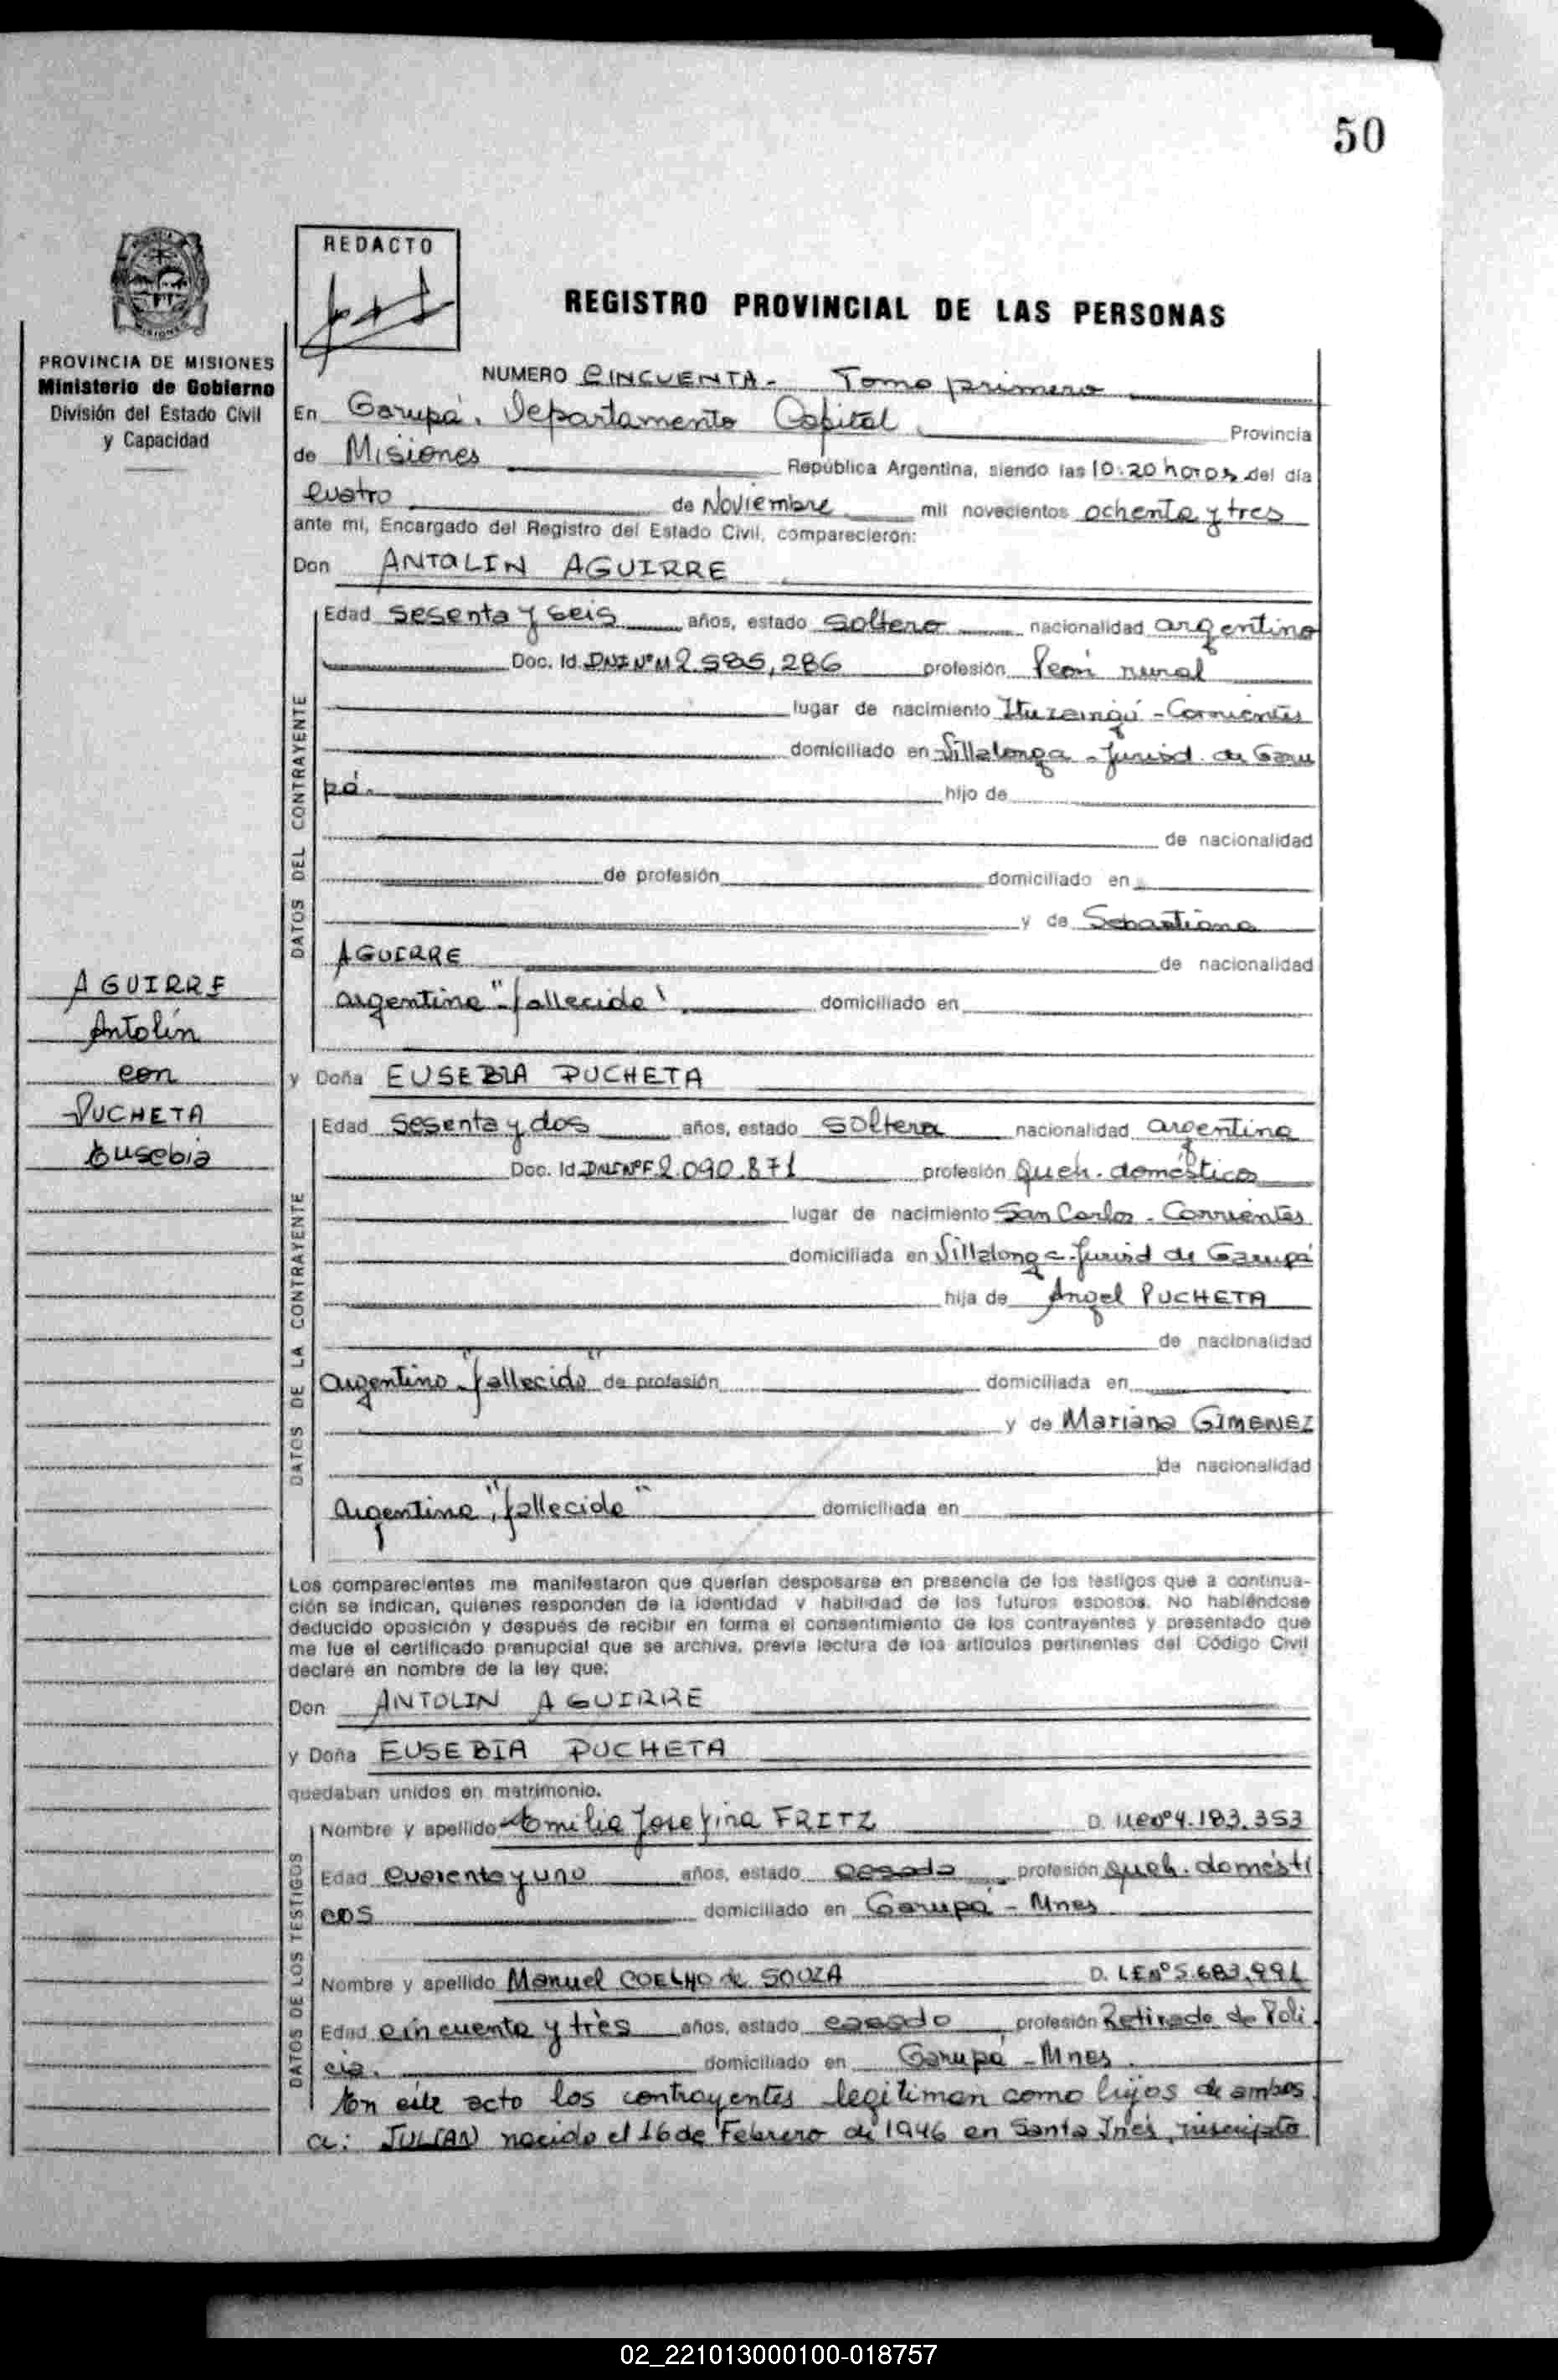 50
REDACTO
REGISTRO PROVINCIAL DE LAS PERSONAS
PROVINCIA DE MISIONES
Ministerio de Gobierno
División del Estado Civil
y Capacidad
AGUIRRE
Antolín
con
PUCHETA
Eusebia
NUMERO CINCUENTA - Tomo primero
En Garupá. Departamento Capital Provincia
de Misiones República Argentina, siendo las 10:20 horas del día
cuatro de Noviembre mil novecientos ochenta y tres
ante mi, Encargado del Registro del Estado Civil, comparecieron:
Don ANTOLIN AGUIRRE
DATOS DEL CONTRAYENTE
Edad sesenta y seis años, estado soltero nacionalidad argentino
Doc. Id. DNI Nº M 2.585,286 profesión Peón rural
lugar de nacimiento Ituzaingó - Corrientes
domiciliado en Villalonga - Jurisd. de Garu
pá. hijo de
de nacionalidad
de profesión domiciliado en
y de Sebastiana
AGUIRRE de nacionalidad
argentina "fallecida" domiciliado en
y Doña EUSEBIA PUCHETA
DATOS DE LA CONTRAYENTE
Edad sesenta y dos años, estado soltera nacionalidad argentina
Doc. Id. DNI Nº F. 2.090.871 profesión Queh. domésticos
lugar de nacimiento San Carlos - Corrientes
domiciliada en Villalonga - Jurisd de Garupá
hija de Angel PUCHETA
de nacionalidad
argentino "fallecido" de profesión domiciliada en
y de Mariana GIMENEZ
de nacionalidad
argentina, "fallecida" domiciliada en
Los comparecientes me manifestaron que querían desposarse en presencia de los testigos que a continua-
ción se indican, quienes responden de la identidad y habilidad de los futuros esposos. No habiéndose
deducido oposición y después de recibir en forma el consentimiento de los contrayentes y presentado que
me fue el certificado prenupcial que se archiva, previa lectura de los artículos pertinentes del Código Civil
declaré en nombre de la ley que:
Don ANTOLIN AGUIRRE
y Doña EUSEBIA PUCHETA
quedaban unidos en matrimonio.
DATOS DE LOS TESTIGOS
Nombre y apellido Emilia Josefina FRITZ D. Nº 4.183.353
Edad cuarenta y uno años, estado casada profesión queh. domésti
cos domiciliado en Garupá - Mnes
Nombre y apellido Manuel COELHO de SOUZA D. LE Nº 5.683.991
Edad cincuenta y tres años, estado casado profesión Retirado de Poli
cia. domiciliado en Garupá - Mnes.
En este acto los contrayentes legitiman como hijos de ambos
a: JULIAN nacido el 16 de Febrero de 1946 en Santa Inés, inscripto
02_221013000100-018757